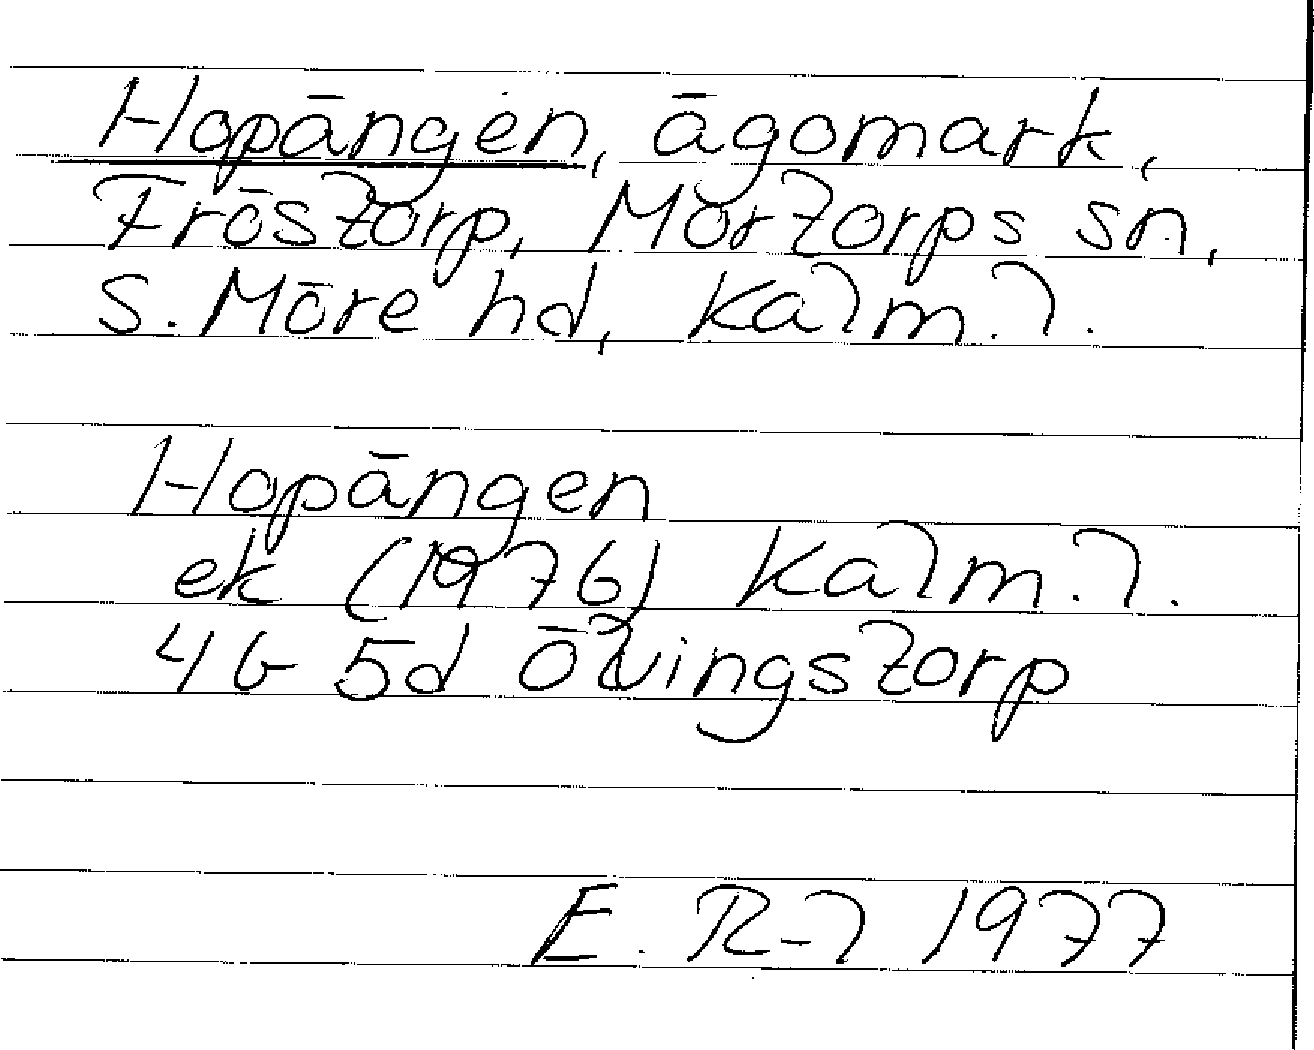 Hopängen, ägomark,
Fröstorp, Mortorps sn,
S. Möre hd, Kalm. l.
Hopängen
ek (1976) Kalm. l.
4G 5d Ölvingstorp
E. R-l 1977